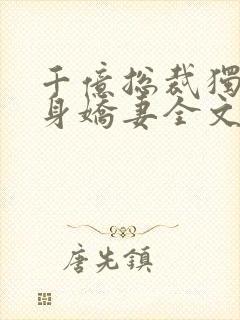 千億总裁獨
身嬌妻全文
唐先鎮